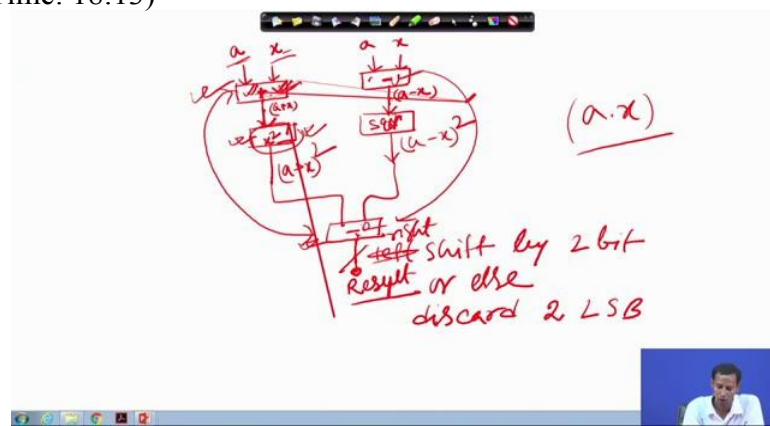 Time: 16:15)
a x a x
(a+x) (a-x)
(a+x)² (a-x)²
(a.x)
right
left shift by 2 bit
Result or else
discard 2 LSB